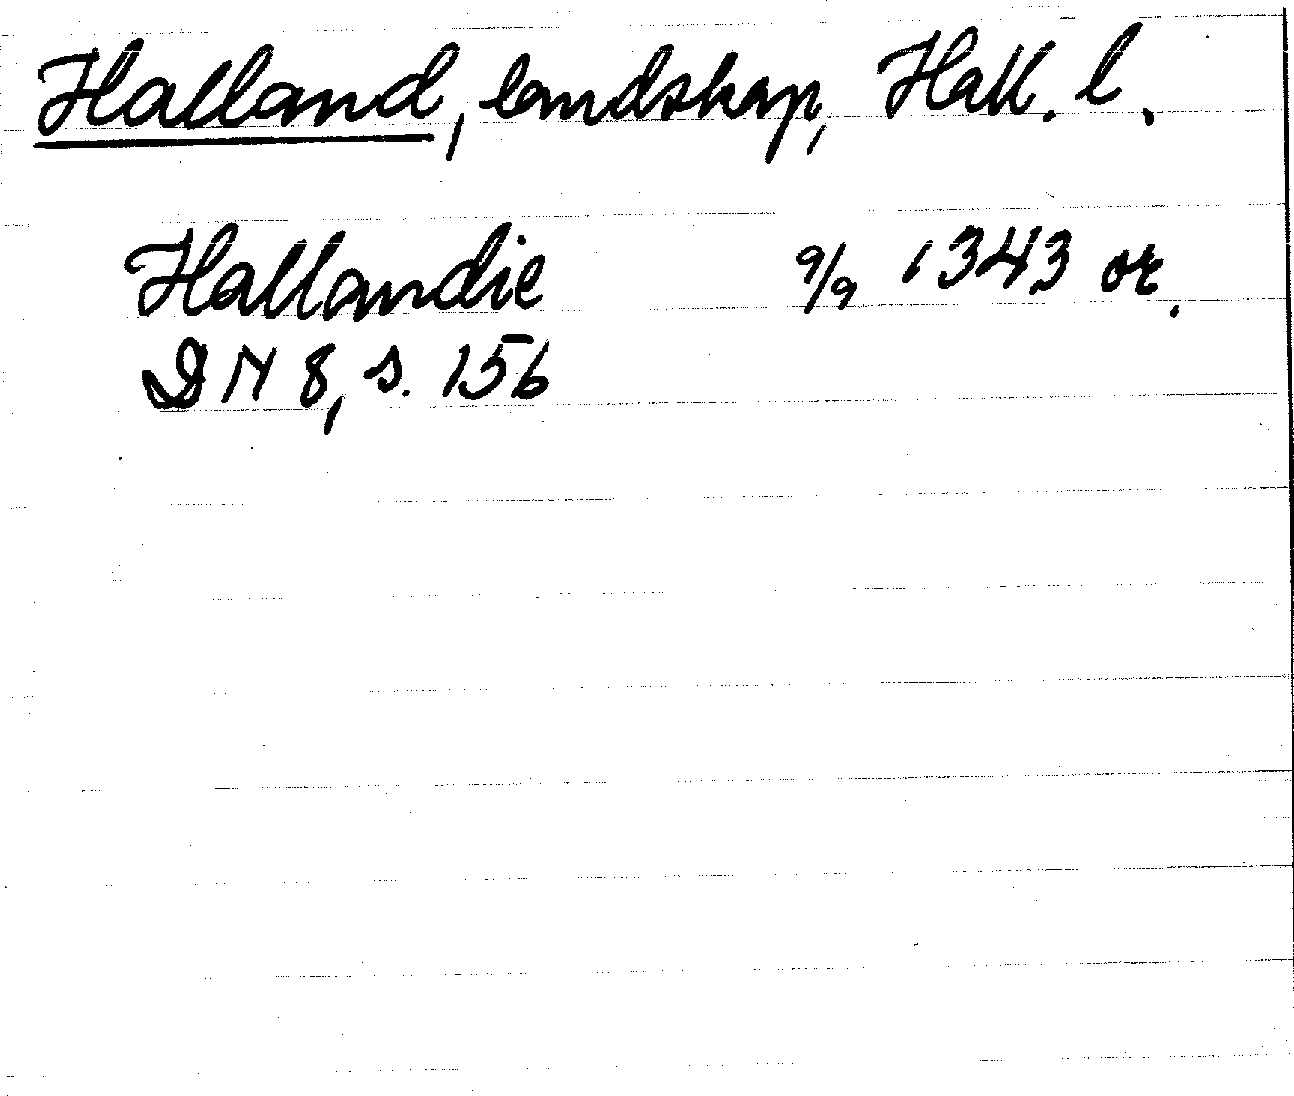 Halland, landskap, Hall. l.
Hallandie 9/9 1343 or.
DN 8, s. 156